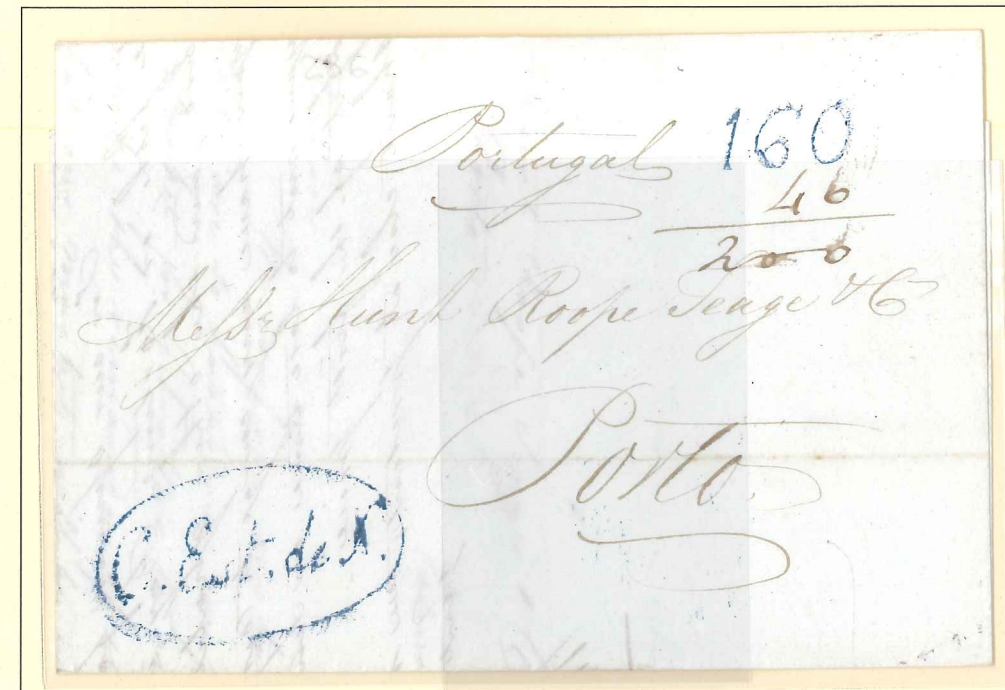 286
Portugal 160
40
200
Messrs Hunt Roope Teage & Co
Porto.
C. Est. de N.